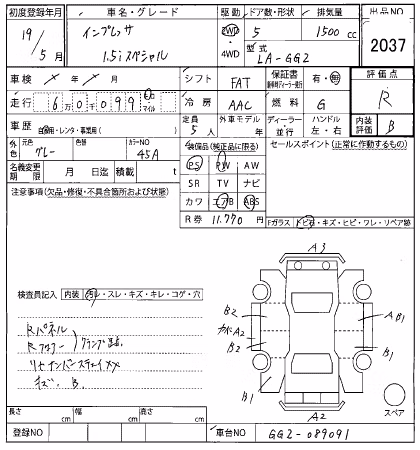 初度登録年月 車名・グレード 駆動 ドア数・形状 排気量 出品NO
19/5月 インプレッサ 1.5iスペシャル 2WD 4WD 5 1500cc 2037
型式 LA-GG2
車検 × 年 × 月 シフト FAT 保証書 有・無 評価点
走行 6万0千099 km マイル 冷房 AAC 燃料 G R
車歴 自家用・レンタ・事業用( ) 定員 5人 外車モデル 年 ディーラー・並行 ハンドル 左・右 内装評価 B
外色 元色 グレー 色替 カラーNO 45A 装備品(純正品に限る) セールスポイント(正常に作動するもの)
名義変更期限 月 日迄 積載 t PS PW AW
注意事項(欠品・修復・不具合箇所および状態) SR TV ナビ
カワ エアB ABS
R券 11,770円 Fガラス トビ石・キズ・ヒビ・ワレ・リペア跡
A3
検査員記入 内装 汚れ・スレ・キズ・キレ・コゲ・穴
B2 A B1
カドA2
B2
B1 B1
Rパネル
Rフロアー
リヤインパーステイ××
キズ、B.
A2
スペア
長さ cm 幅 cm 高さ cm
登録NO 車台NO GG2-089091